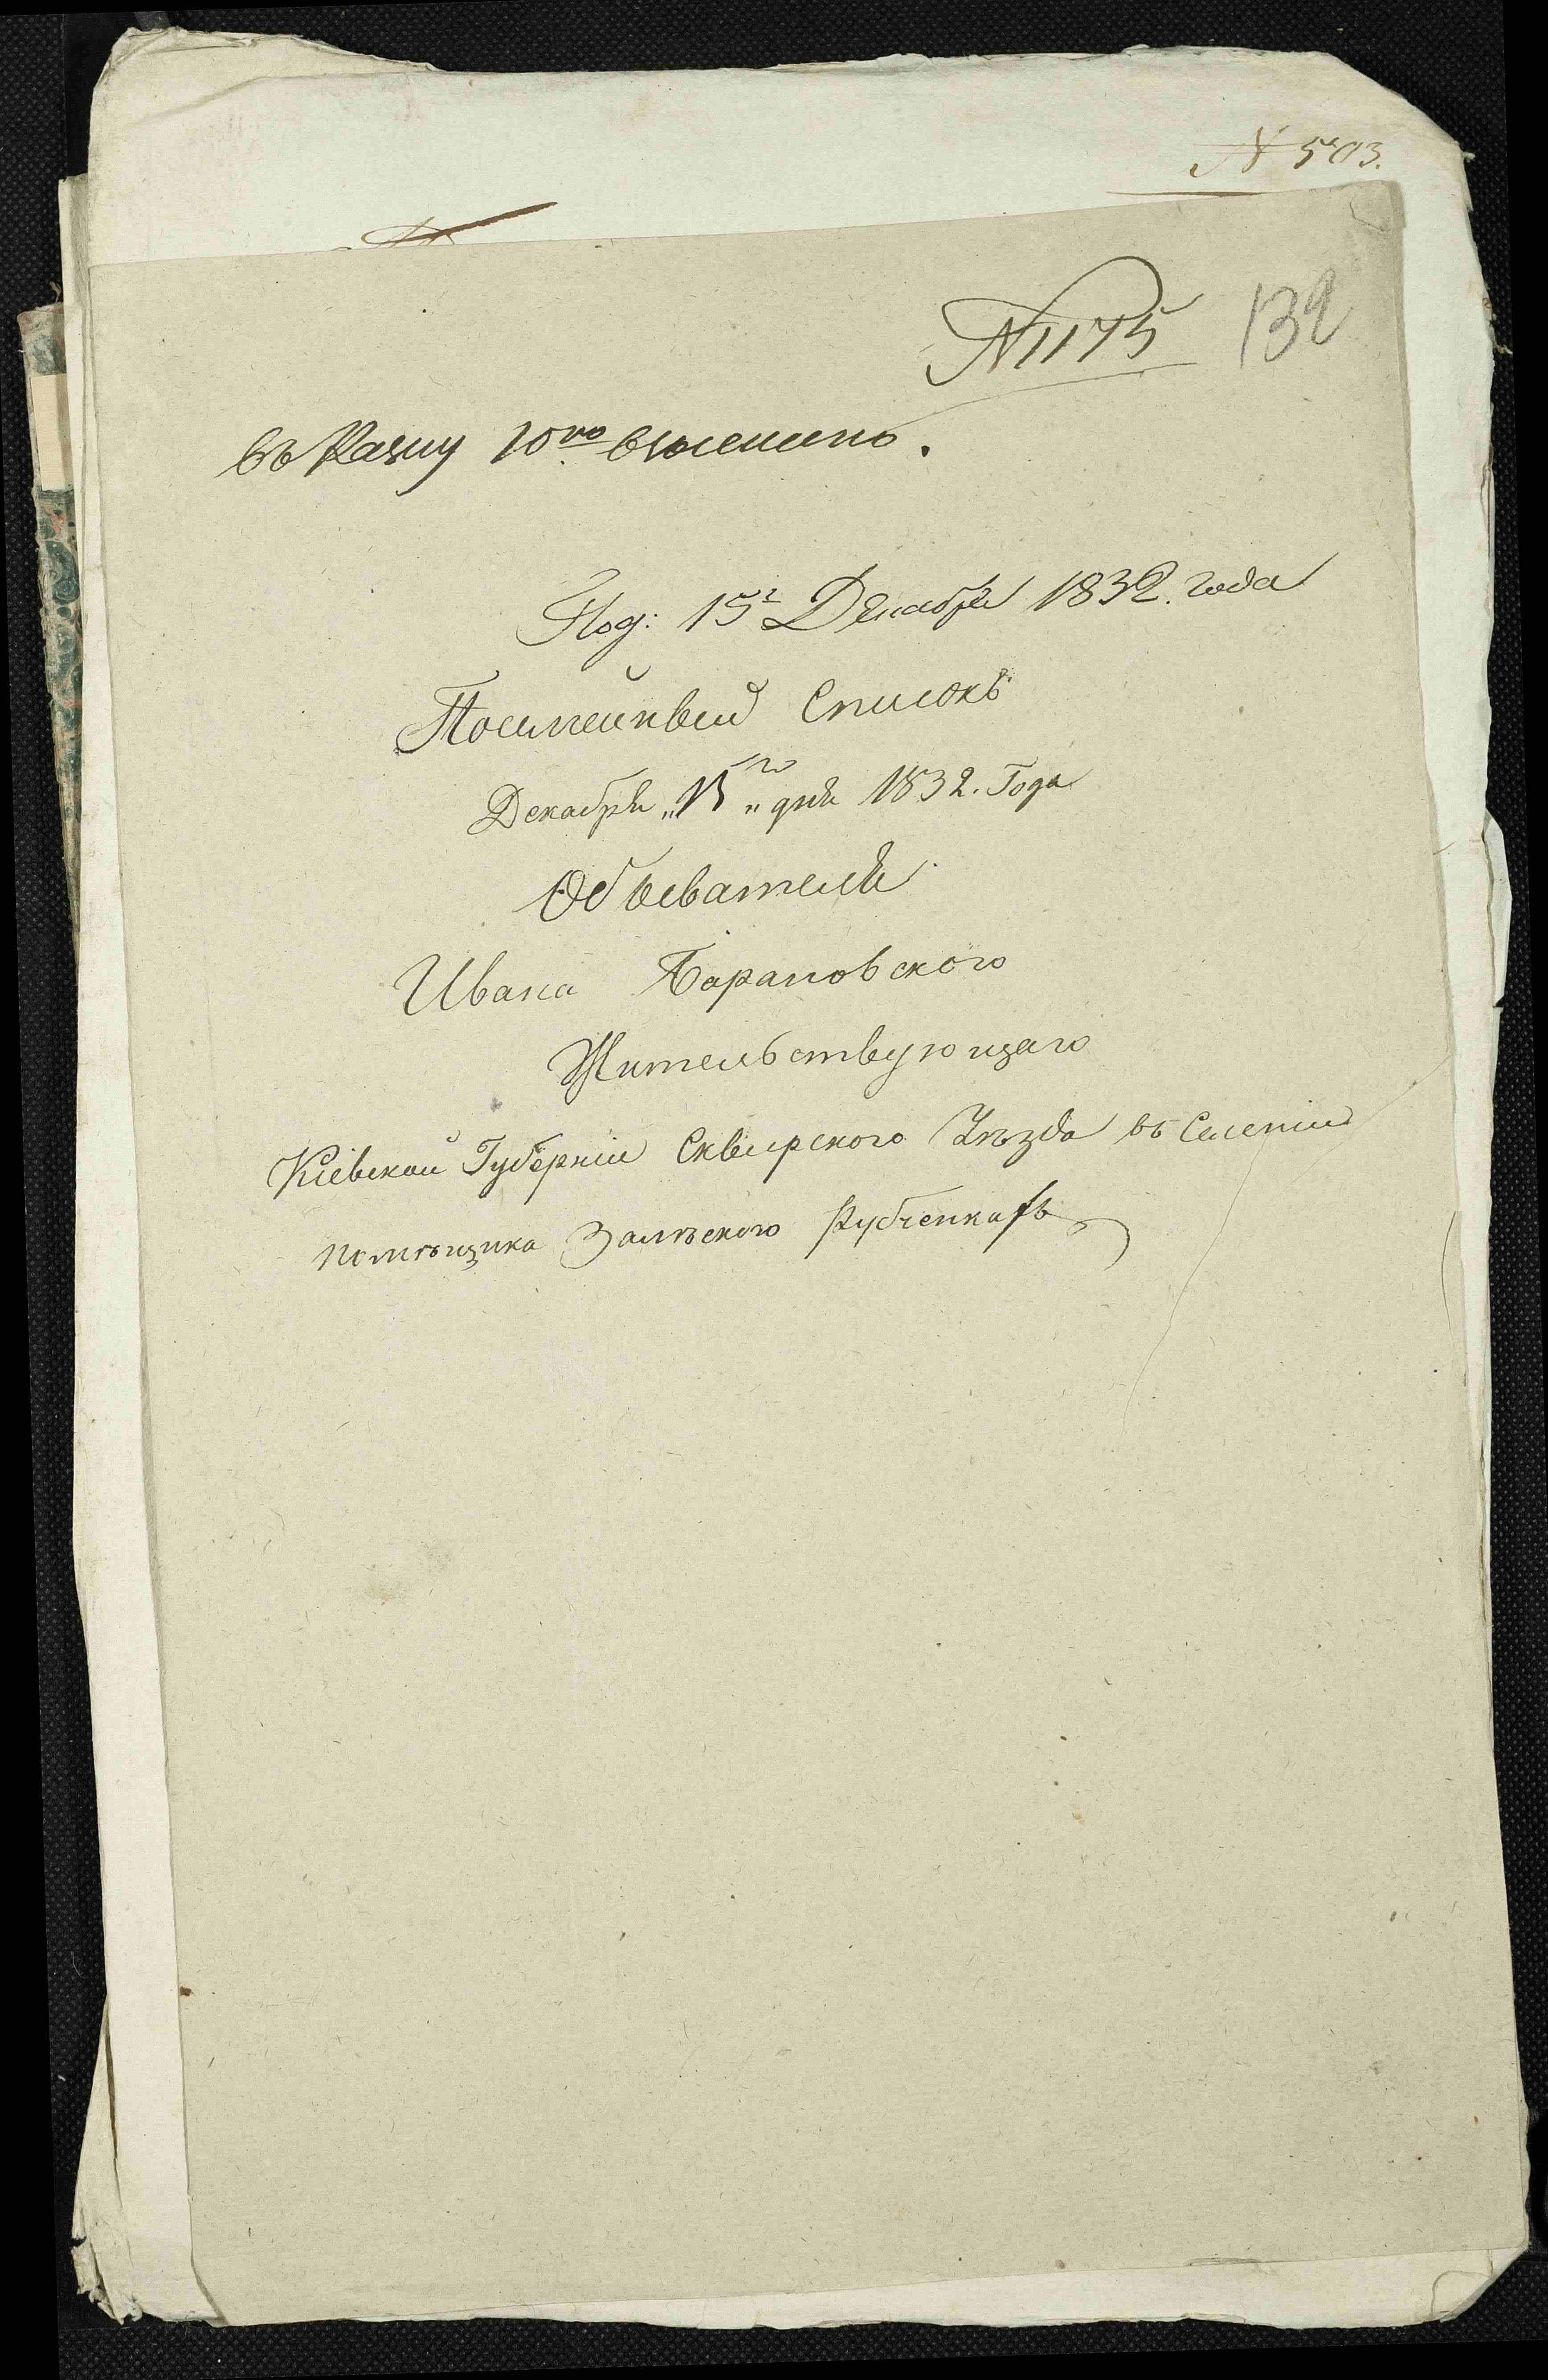 N 503.
N 1175 132
въ Казну 10го внесено.
Под: 15г Декабря 1832. года
Посмейный Списокъ
Декабря „15го„ дня 1832. Года
Обывателя
Ивана Барановского
Жительствующаго
Кіевской Губерніи Сквирского Уѣзда въ Селеніи
помѣщика Залѣского Рубченкахъ